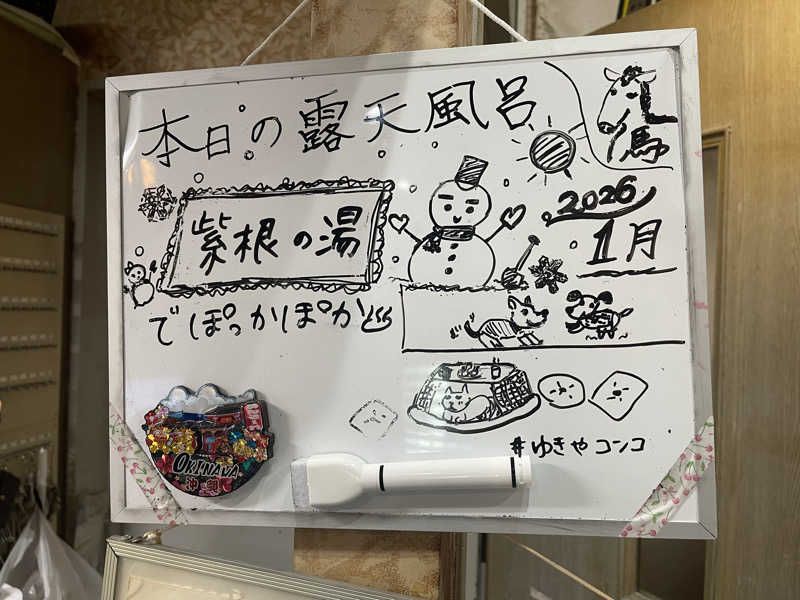 本日の露天風呂
馬
2026
1月
紫根の湯
でぽっかぽか♨
#ゆきやコンコ
OKINAWA
沖縄